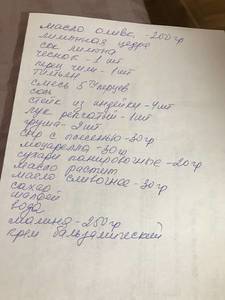 масло оливк. -200гр
лимонная цедра
сок лимона
чеснок - 1 шт
перец чили - 1шт
тимьян
смесь 5 перцев
соль
стейк из индейки - 4шт
лук репчатый - 1шт
груша - 2шт
сыр с плесенью - 30гр
моцарелла - 30
сухари панировочные - 20гр
масло растит
масло сливочное - 30гр
сахар -
шалфей
вода
малина - 250гр
крем бальзамический